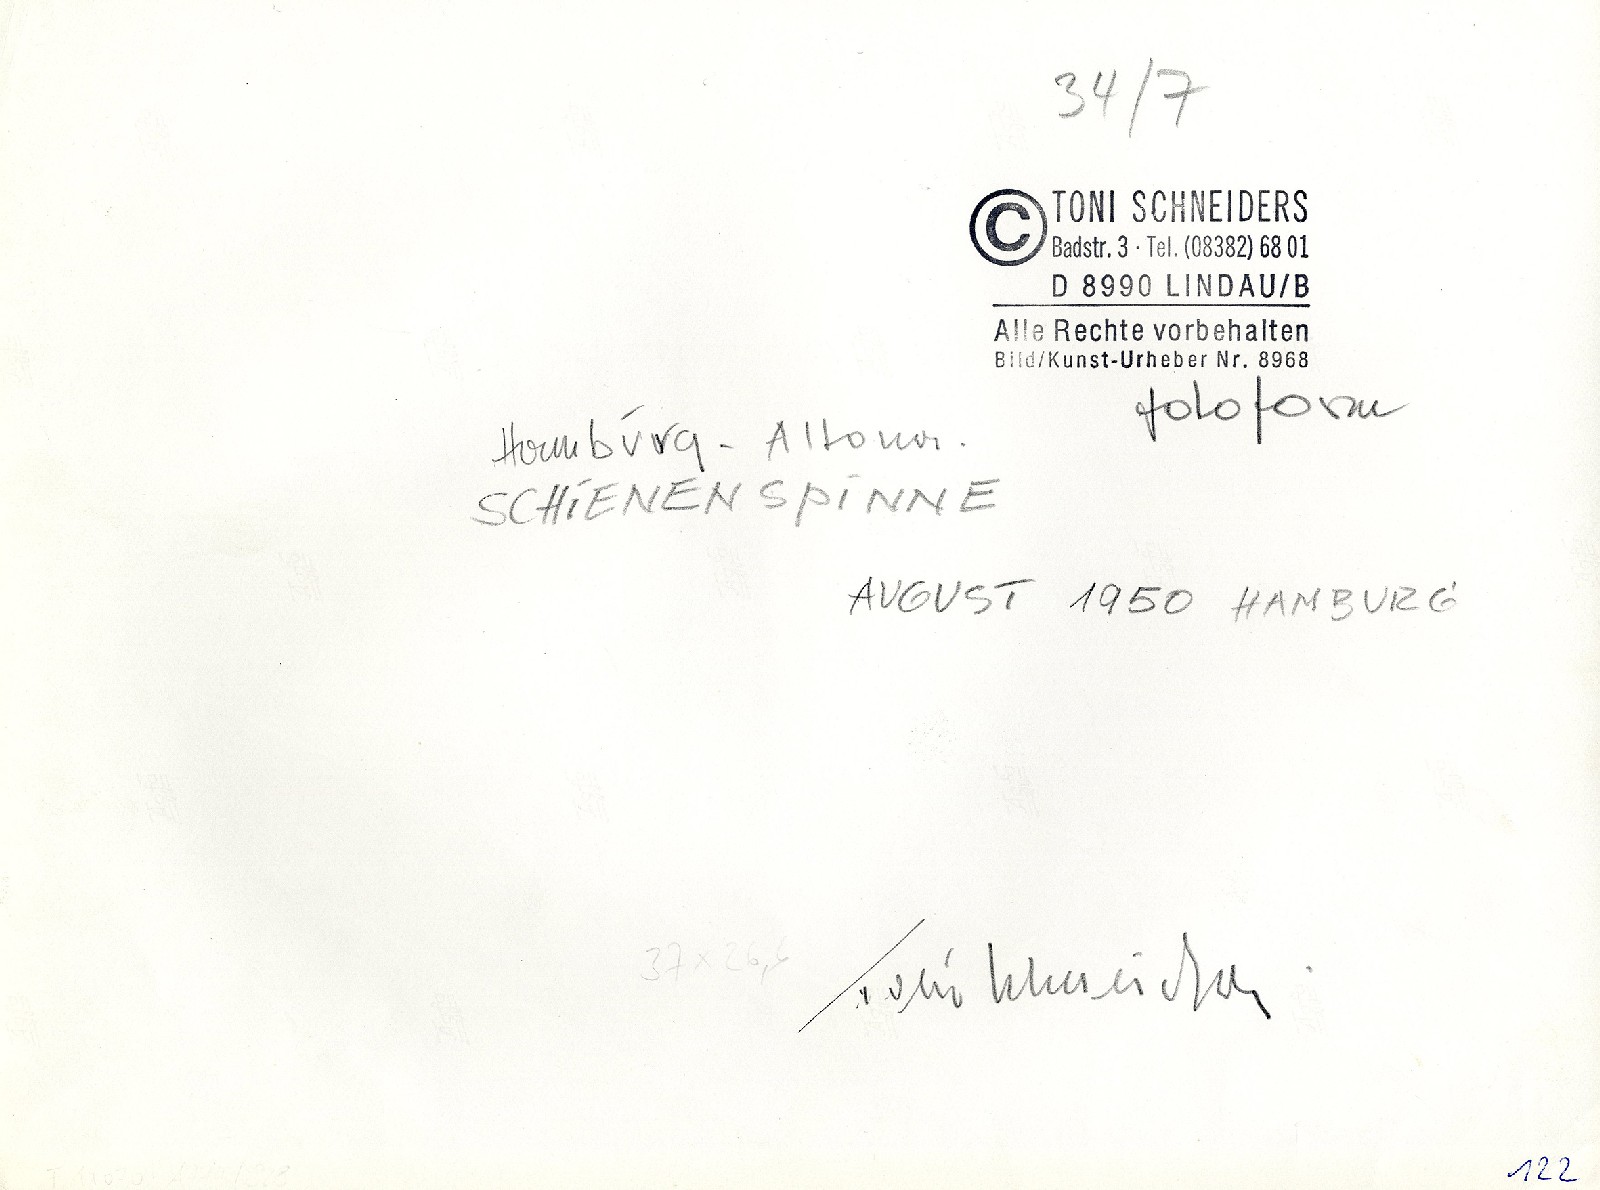 34/7
© TONI SCHNEIDERS
Badstr. 3 · Tel. (08382) 68 01
D 8990 LINDAU/B
Alle Rechte vorbehalten
Bild/Kunst-Urheber Nr. 8968
fotoform
Hamburg - Altona.
SCHIENENSPINNE
AUGUST 1950 HAMBURG
37 x 26,6
Toni Schneiders
122